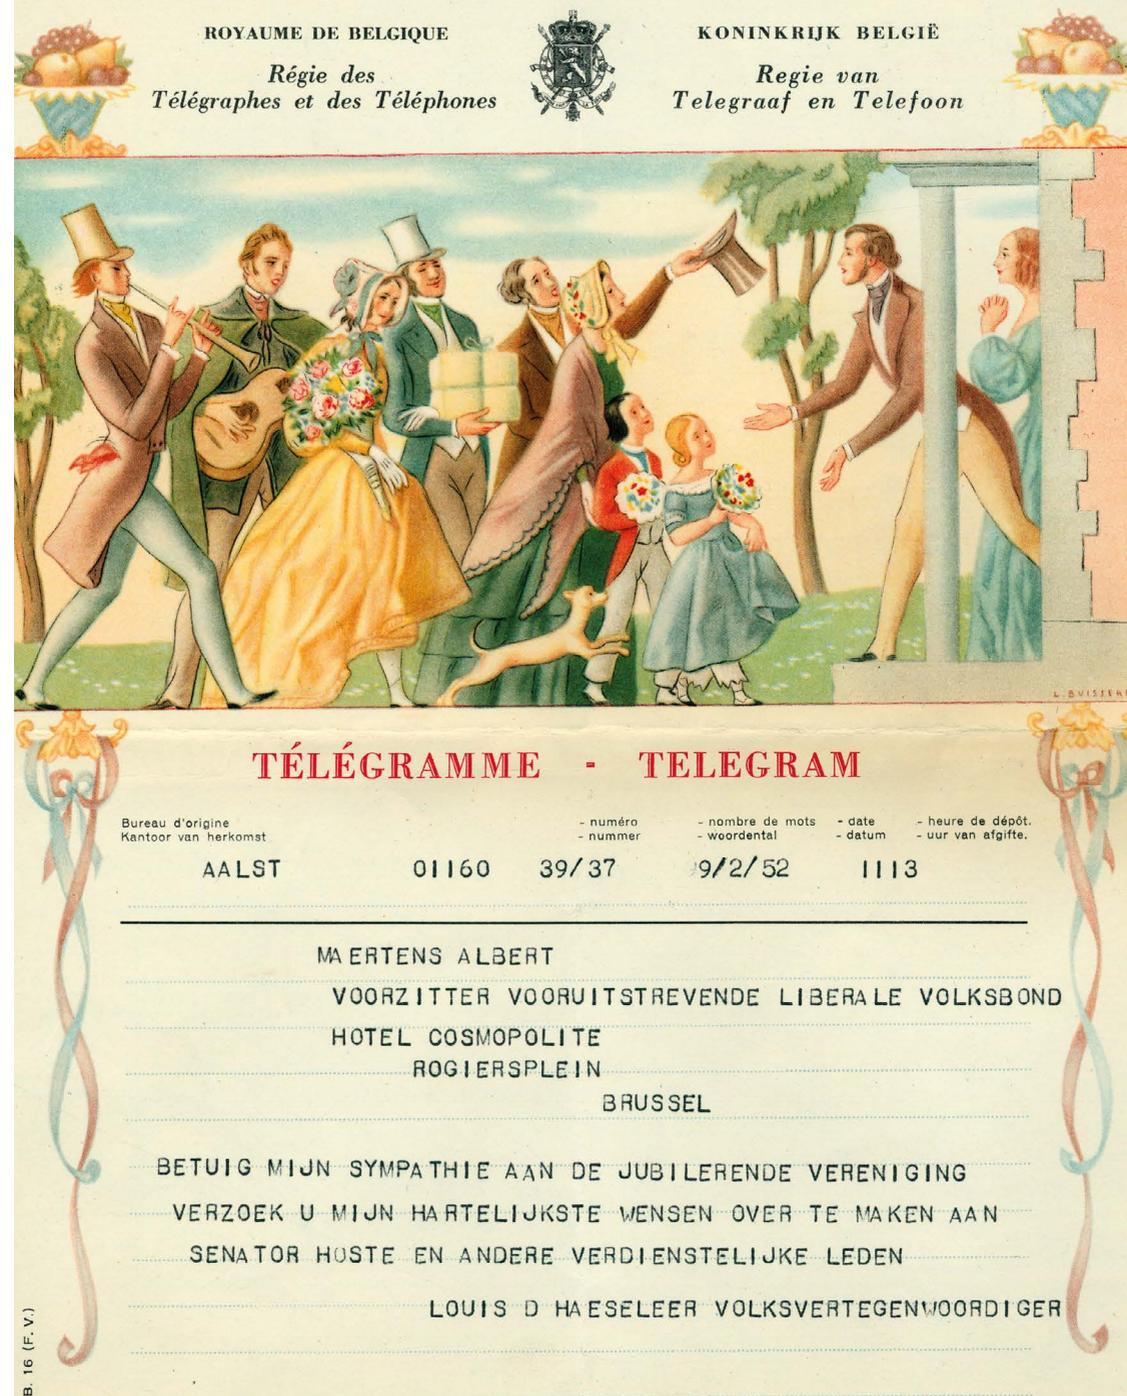 ROYAUME DE BELGIQUE
Régie des
Télégraphes et des Téléphones
KONINKRIJK BELGIË
Regie van
Telegraaf en Telefoon
TÉLÉGRAMME - TELEGRAM
Bureau d'origine - numéro - nombre de mots - date - heure de dépôt.
Kantoor van herkomst - nummer - woordental - datum - uur van afgifte.
AALST 01160 39/37 9/2/52 1113
MAERTENS ALBERT
VOORZITTER VOORUITSTREVENDE LIBERALE VOLKSBOND
HOTEL COSMOPOLITE
ROGIERSPLEIN
BRUSSEL
BETUIG MIJN SYMPATHIE AAN DE JUBILERENDE VERENIGING
VERZOEK U MIJN HARTELIJKSTE WENSEN OVER TE MAKEN AAN
SENATOR HOSTE EN ANDERE VERDIENSTELIJKE LEDEN
LOUIS D HAESELEER VOLKSVERTEGENWOORDIGER
B. 16 (F. V.)